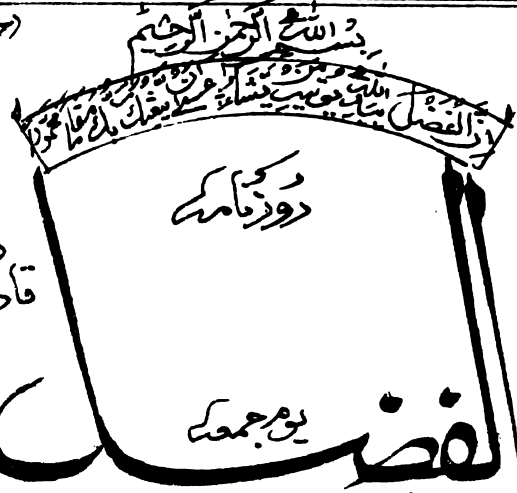 بسم الله الرحمن الرحيم
ان الفضل بيد الله يؤتيه من يشاء عسى ان يبعثك ربك مقاما محمودا
روزنامہ
یوم جمعہ
الفضل